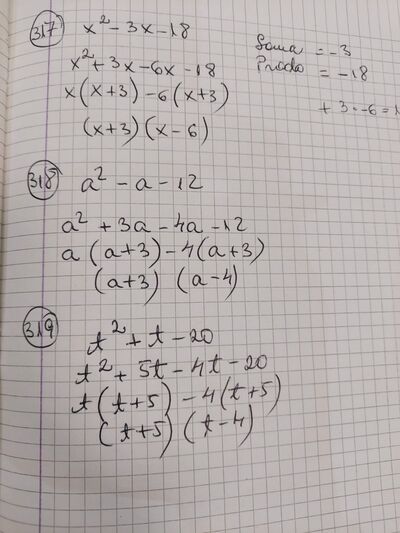 317 x² - 3x - 18
x² + 3x - 6x - 18
x(x+3) - 6(x+3)
(x+3)(x-6)
Soma = -3
= -18
+ 3 · -6 =
318 a² - a - 12
a² + 3a - 4a - 12
a(a+3) - 4(a+3)
(a+3) (a-4)
319 t² + t - 20
t² + 5t - 4t - 20
t(t+5) - 4(t+5)
(t+5)(t-4)